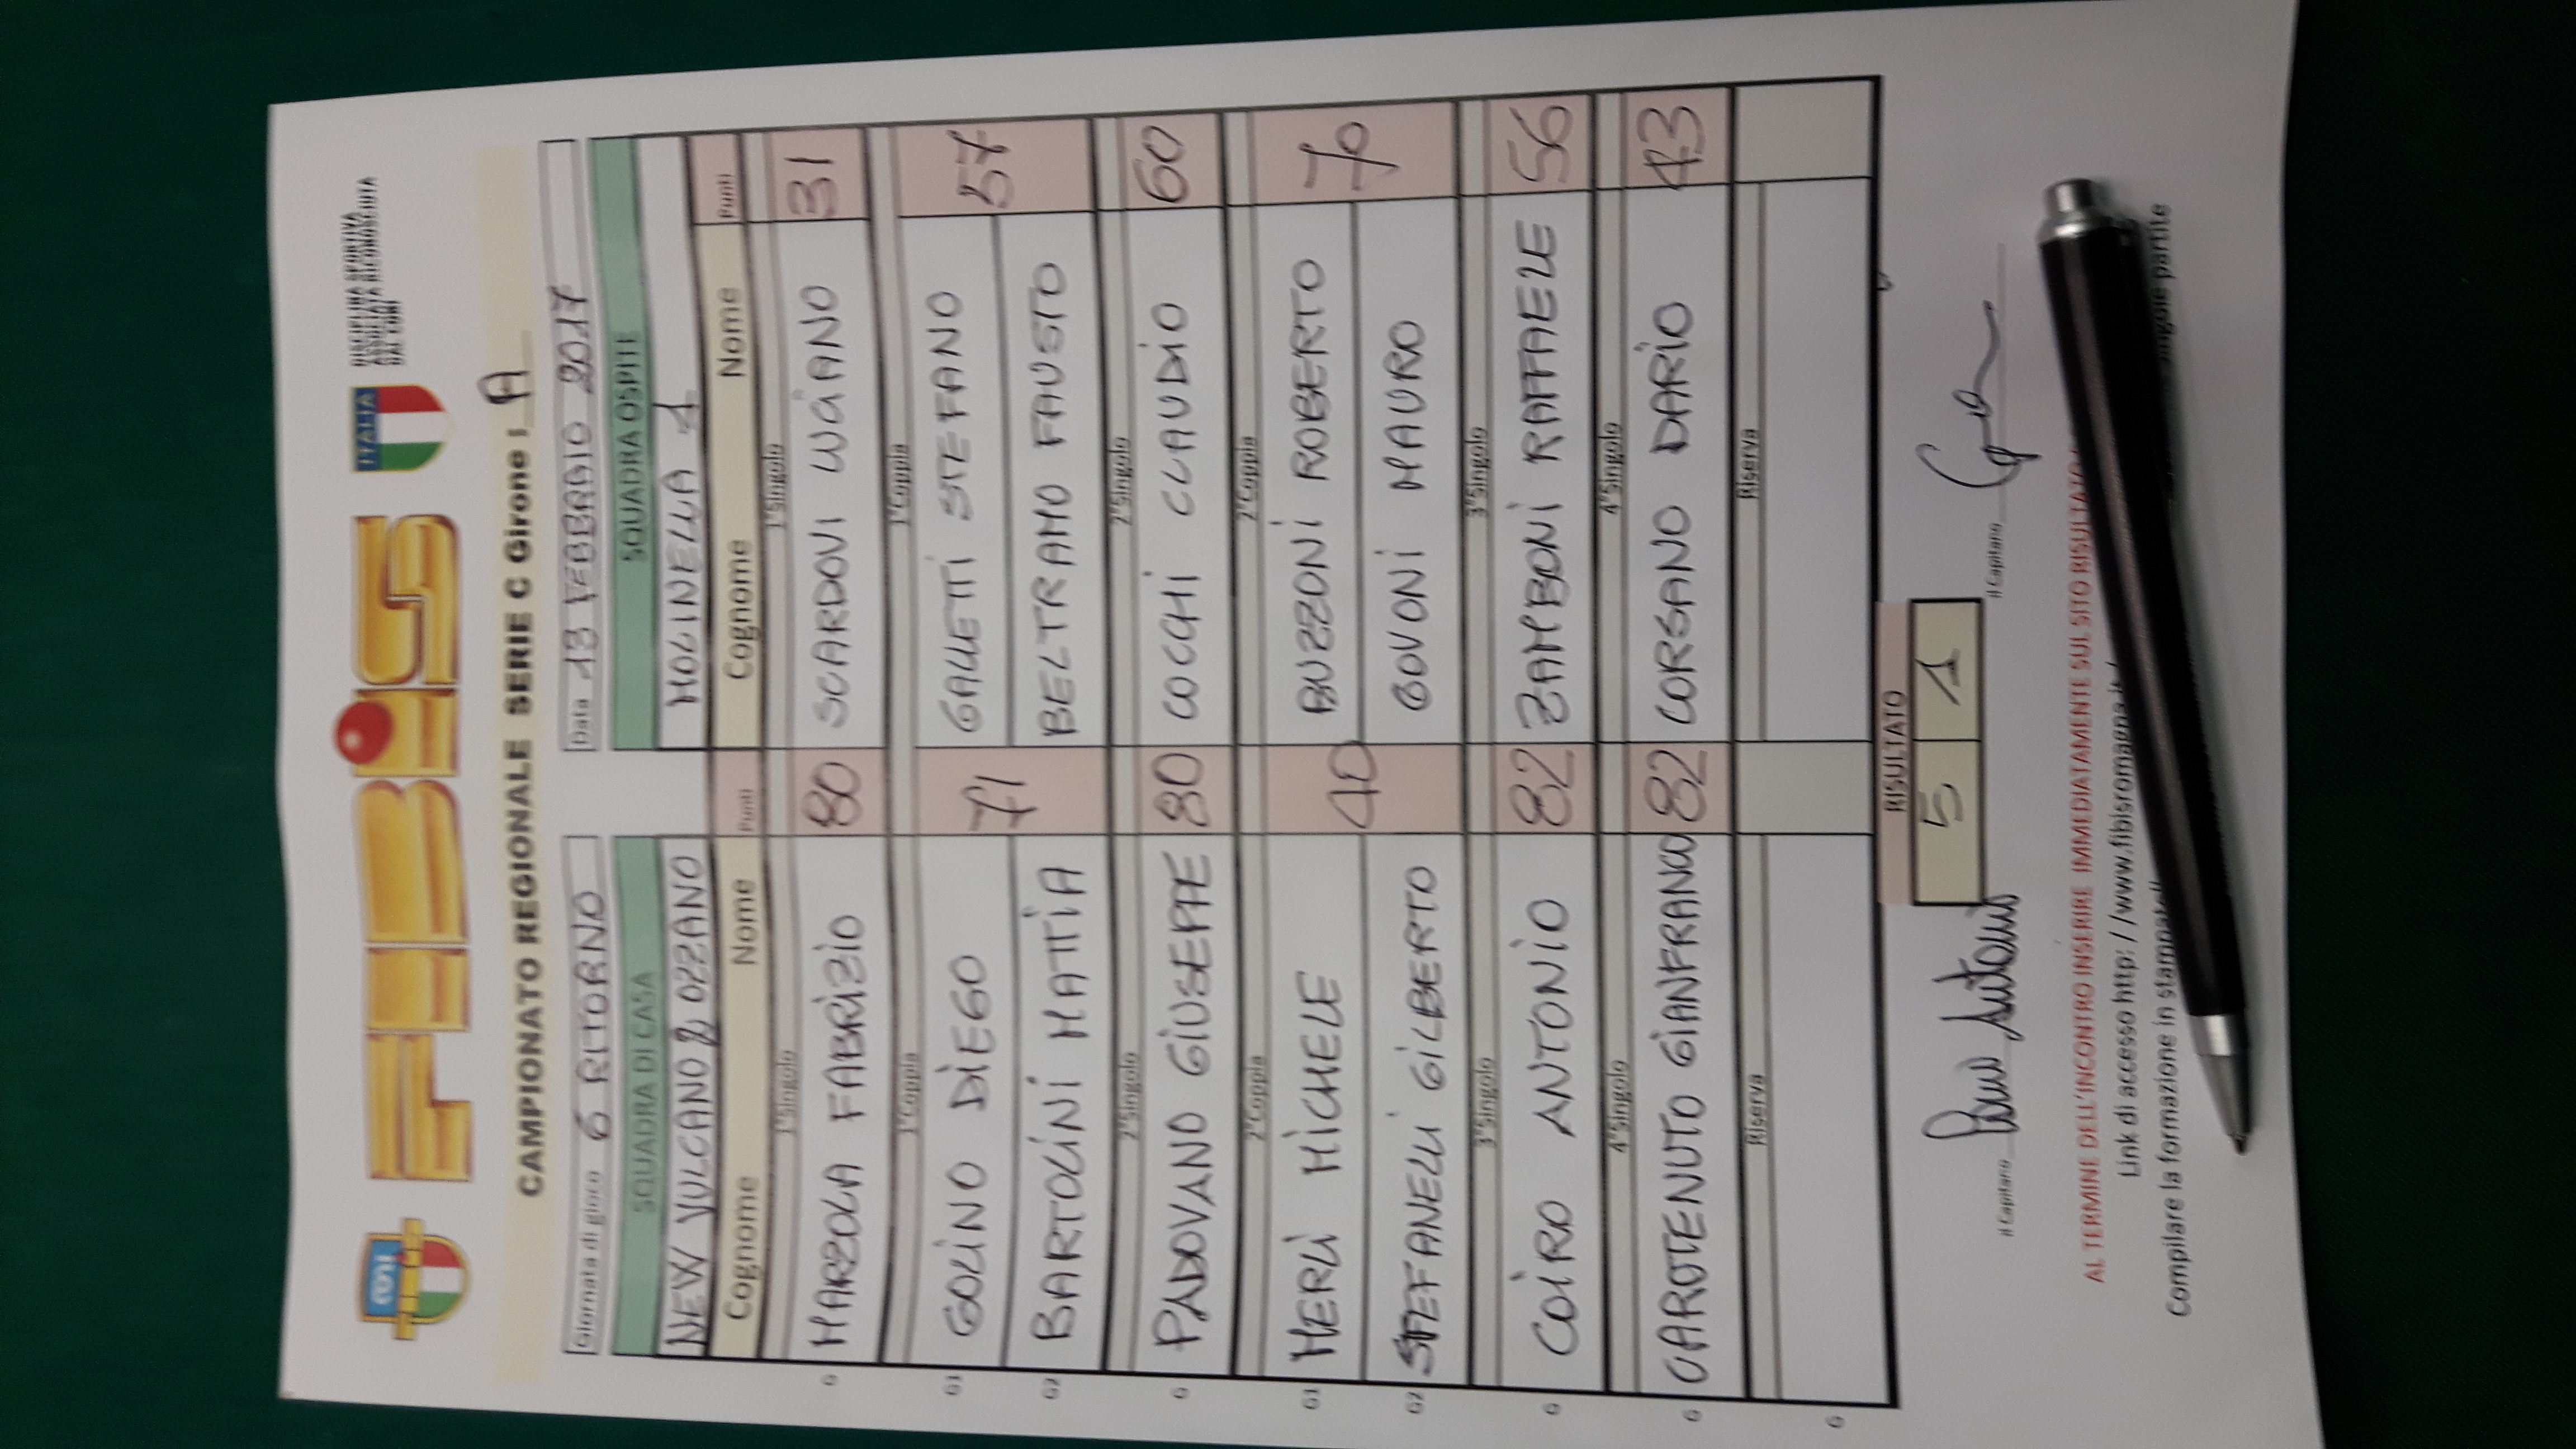 CONI
FIBiS
ITALIA
DISCIPLINA SPORTIVA
ASSOCIATA RICONOSCIUTA
DAL CONI
CAMPIONATO REGIONALE SERIE C Girone A
Giornata di gioco 6 RITORNO Data 13 FEBBRAIO 2017
SQUADRA DI CASA SQUADRA OSPITE
NEW VULCANO 2 OZZANO MOLINELLA 1
Cognome Nome Punti Cognome Nome Punti
1°Singolo 1°Singolo
G MARZOLA FABRIZIO 80 SCARDOVI LUCIANO 31
1°Coppia 1°Coppia
G1 GOLINO DIEGO 71 GALLETTI STEFANO 57
G2 BARTOLINI MATTIA BELTRAMO FAUSTO
2°Singolo 2°Singolo
G PADOVANO GIUSEPPE 80 COCCHI CLAUDIO 60
2°Coppia 2°Coppia
G1 MERLI MICHELE 40 BUZZONI ROBERTO 70
G2 STEFANELLI GILBERTO GOVONI MAURO
3°Singolo 3°Singolo
G COIRO ANTONIO 82 ZAMBONI RAFFAELE 56
4°Singolo 4°Singolo
G CAROTENUTO GIANFRANCO 82 CORSANO DARIO 43
Riserva Riserva
G
RISULTATO
5 1
il Capitano Antonio il Capitano
AL TERMINE DELL'INCONTRO INSERIRE IMMEDIATAMENTE SUL SITO
Link di accesso http://www.fibisromagna.it/
Compilare la formazione in singole partite